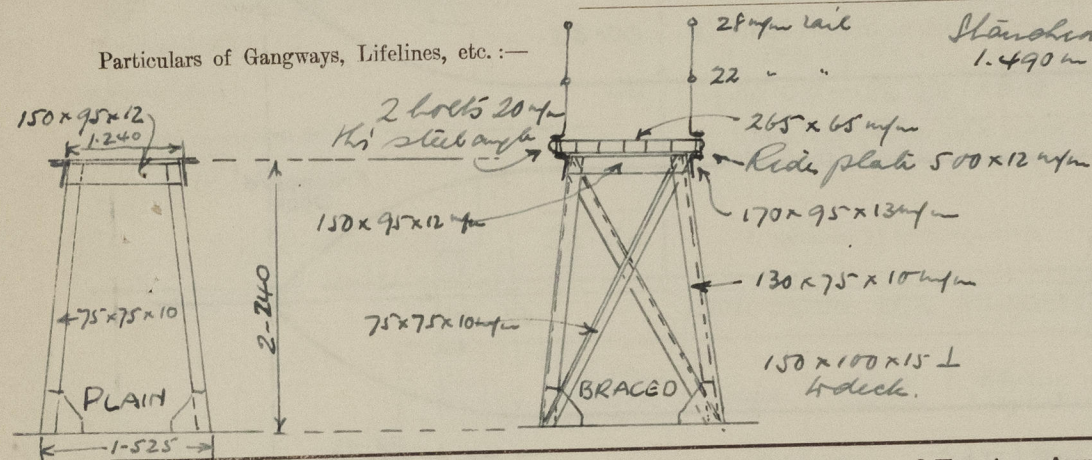 Particulars of Gangways, Lifelines, etc. :—
28 m/m rail
22 " "
1.490 m
150×95×12
1.240
2 bolts 20 m/m
thi' steel angle
265 × 65 m/m
plate 500×12 m/m
150× 95×12 m/m
170× 95×13 m/m
2-240
130×75×10 m/m
75×75×10
75×75×10 m/m
150×100×15 ⊥
PLAIN
BRACED
1-525